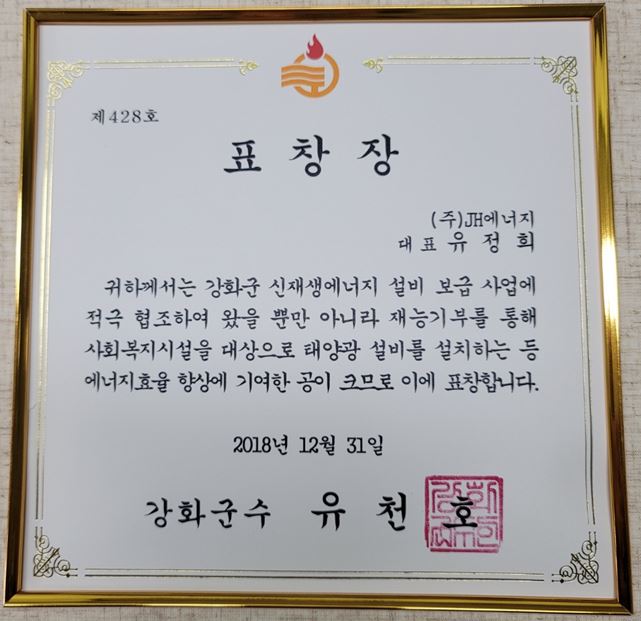 제428호
표창장
(주)JH에너지
대표 유정희
귀하께서는 강화군 신재생에너지 설비 보급 사업에
적극 협조하여 왔을 뿐만 아니라 재능기부를 통해
사회복지시설을 대상으로 태양광 설비를 설치하는 등
에너지효율 향상에 기여한 공이 크므로 이에 표창합니다.
2018년 12월 31일
강화군수 유천호